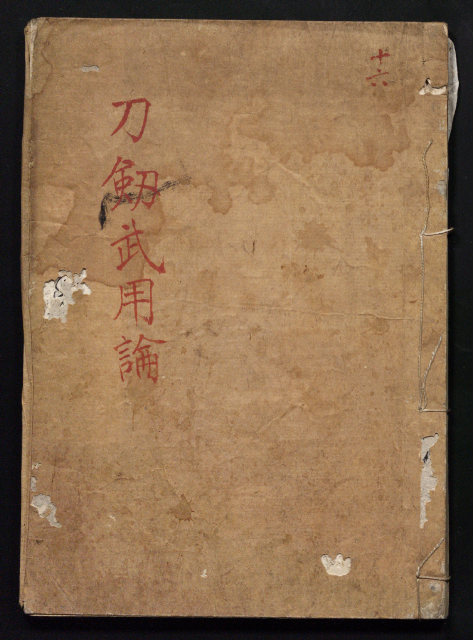 十六
刀劔武用論